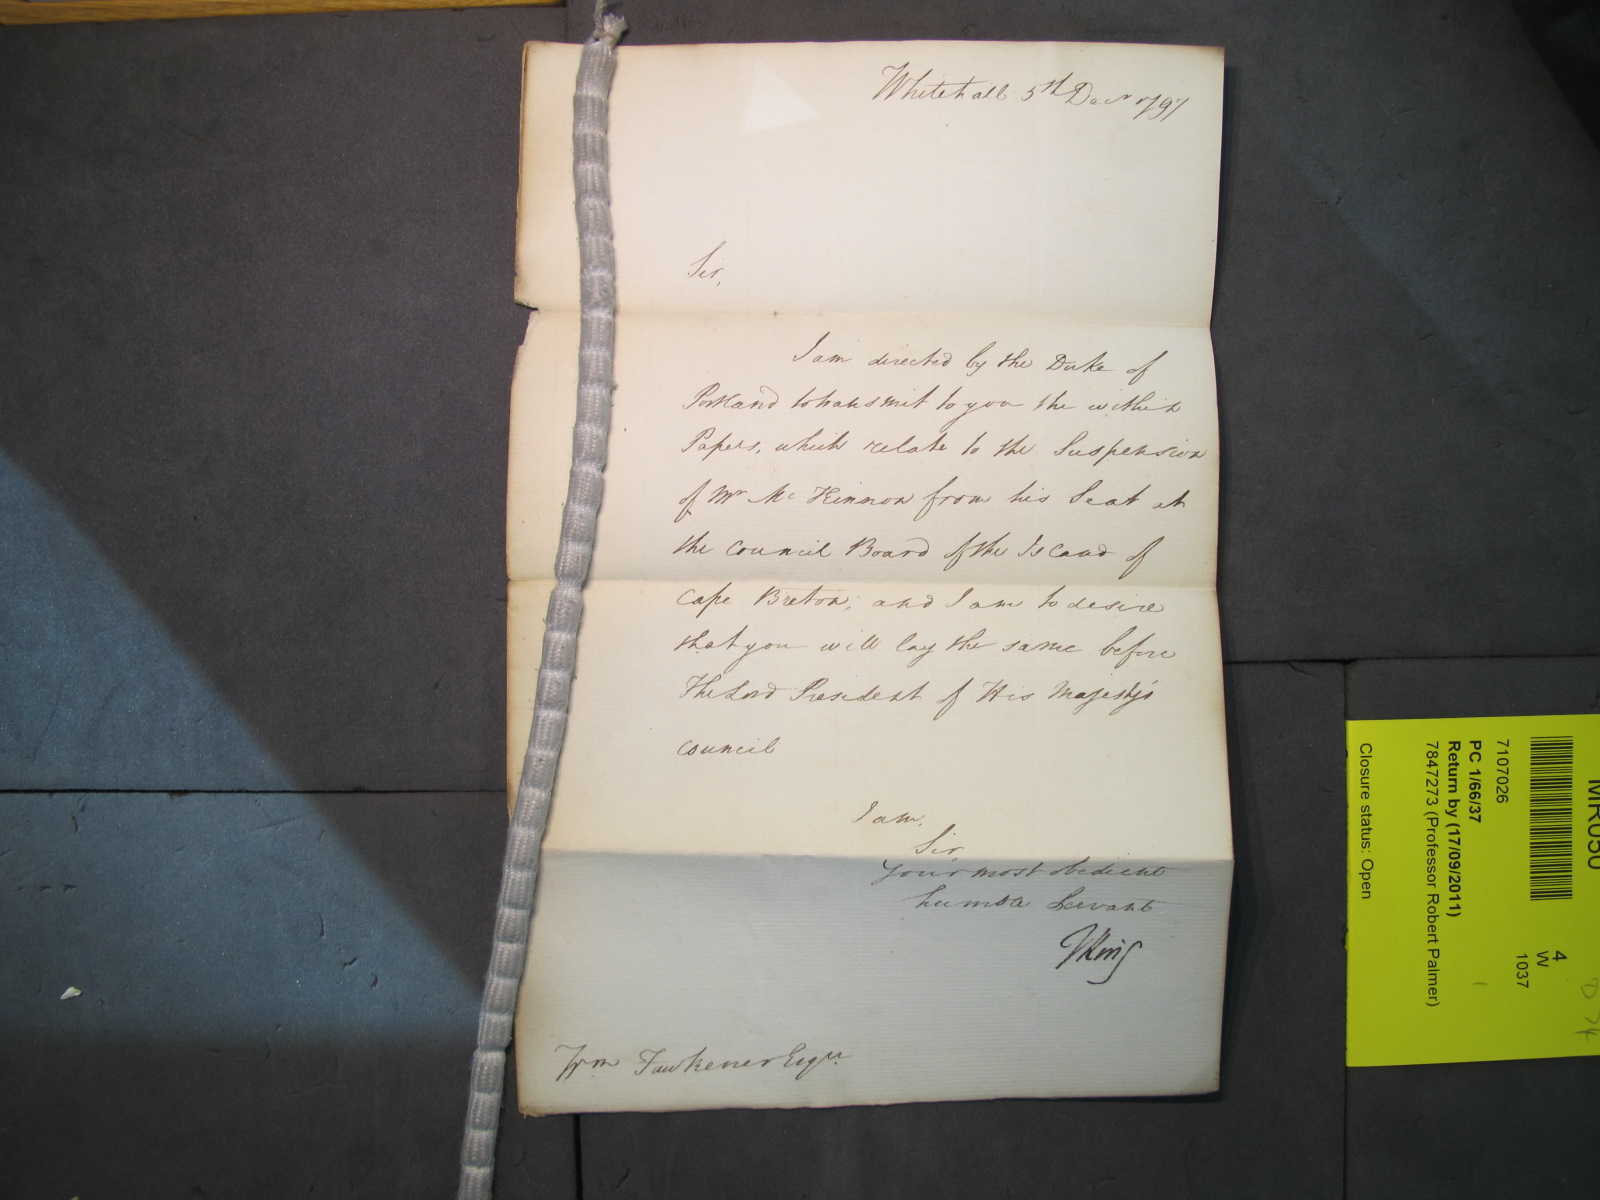 Whitehall 5th Decr 1797
Sir,
I am directed by the Duke of
Portland to transmit to you the within
Papers, which relate to the Suspension
of Mr McKinnon from his Seat at
the Council Board of the Island of
Cape Breton; and I am to desire
that you will lay the same before
The Lord President of His Majesty's
Council
I am,
Sir,
Your most obedient
humble Servant
J King
Wm Fawkener Esqr
MR050
4
W
1037
7107026
PC 1/66/37
Return by (17/09/2011)
7847273 (Professor Robert Palmer)
Closure status: Open